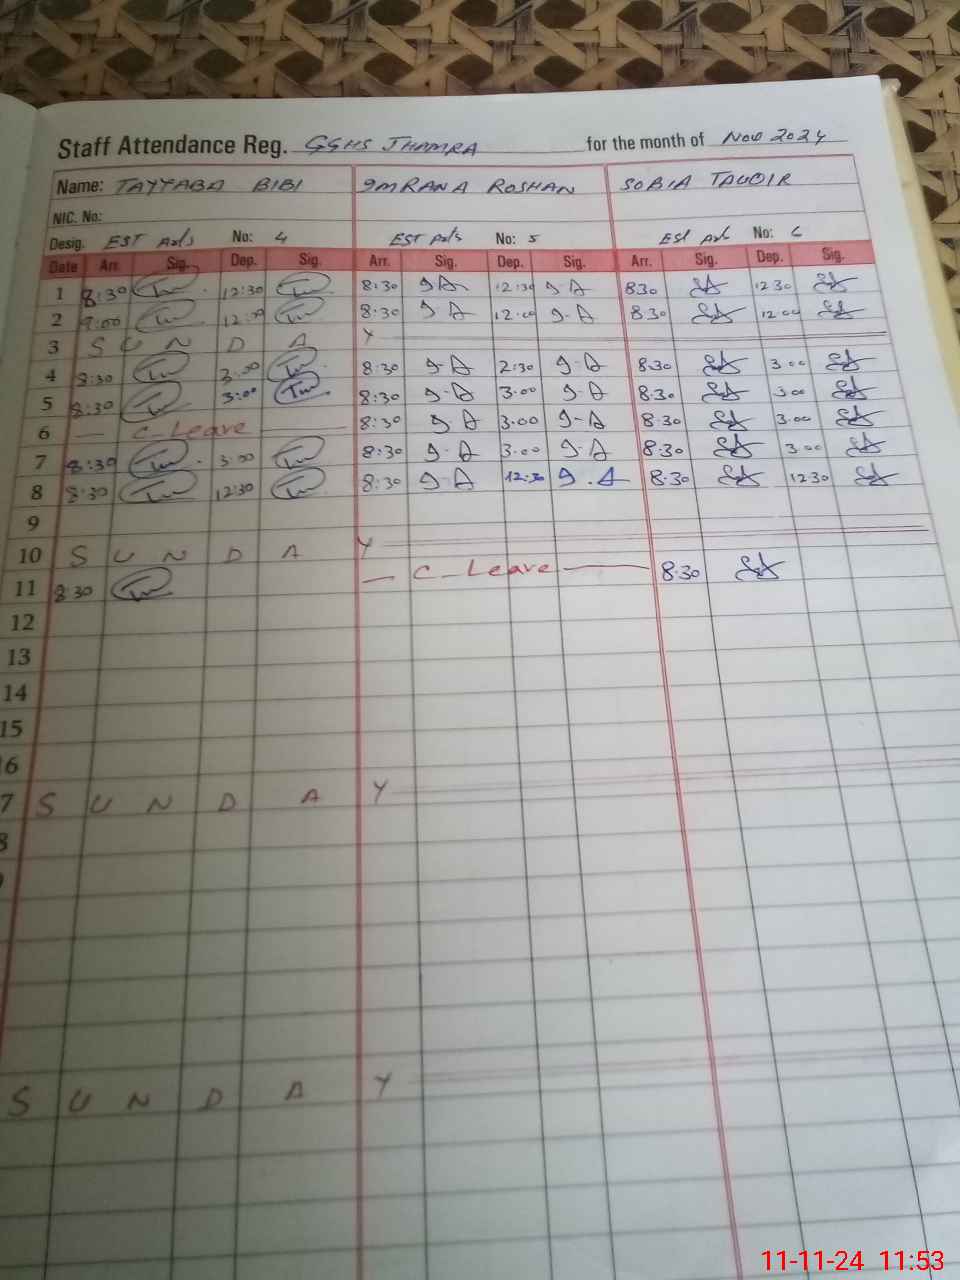 Staff Attendance Reg. GGHS JHAMRA for the month of Nov 2024
Name: TAYYABA BIBI IMRANA ROSHAN SOBIA TAUQIR
NIC. No:
Desig. EST Arts No: 4 EST Arts No: 5 Est Arts No: 6
Date Arr. Sig. Dep. Sig. Arr. Sig. Dep. Sig. Arr. Sig. Dep. Sig.
1 8:30 12:30 8:30 I-A 12:30 I-A 8.30 12 30
2 9:00 12:00 8:30 I-A 12:00 I-A 8.30 12 00
3 S U N D A Y
4 8:30 3:00 8:30 I-A 2:30 I-A 8.30 3 00
5 8:30 3:00 8:30 I-A 3.00 I-A 8.30 3.00
6 — C-Leave — 8:30 I-A 3.00 I-A 8.30 3.00
7 8:30 3:00 8:30 I-A 3.00 I-A 8.30 3.00
8 8:30 12:30 8:30 I-A 12:30 I.A 8.30 12.30
9
10 S U N D A Y
11 8 30 — C-Leave — 8.30
12
13
14
15
6
7 S U N D A Y
8
S U N D A Y
11-11-24 11:53